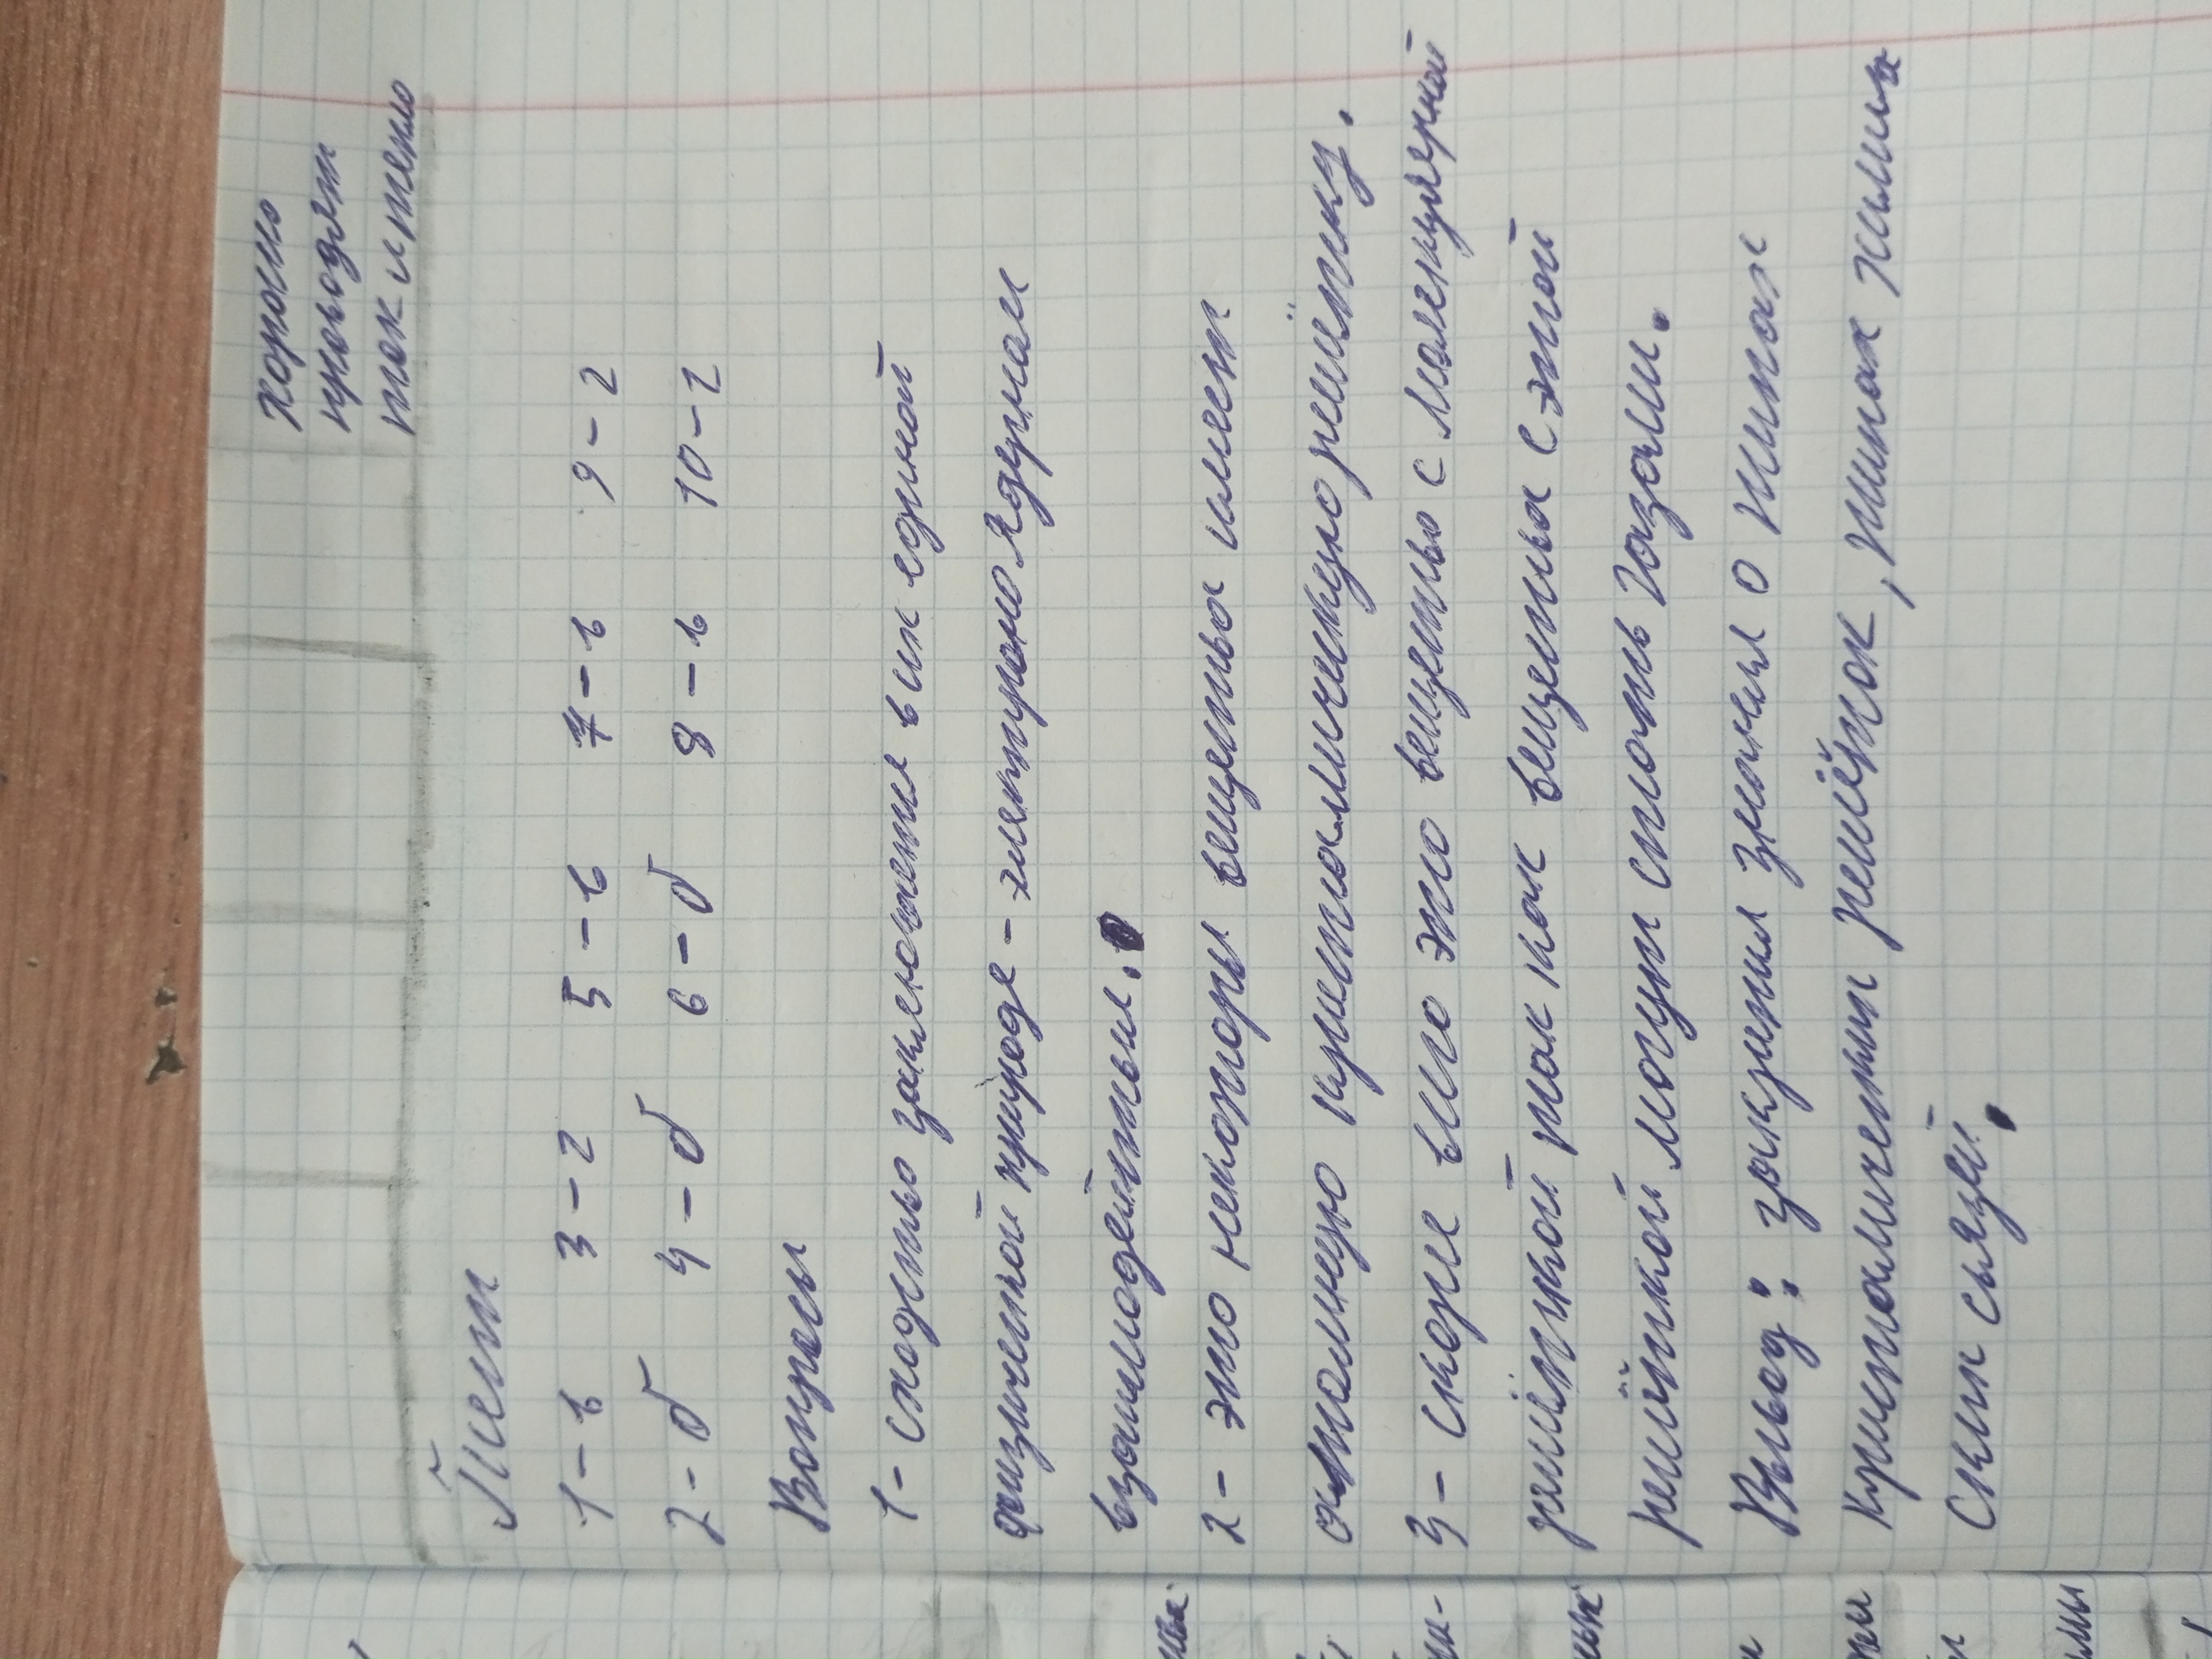 хорошо
проводят
ток и тепло
Тест
1 - в 3 - 2 5 - в 7 - в 9 - 2
2 - б 4 - б 6 - б 8 - в 10 - 2
Вопросы
1 - сходство заключается в их единой
физической природе - электроноядерном
взаимодействии.
2 - это некоторы вещества имеет
атомную кристаллическую решётку.
3 - скоре вего это вещество с молекулярной
решёткой так как вещества с этой
решёткой могут стать газами.
Вывод: закрепил знания о типах
кристалических решёток, типах химиче
ских связей.